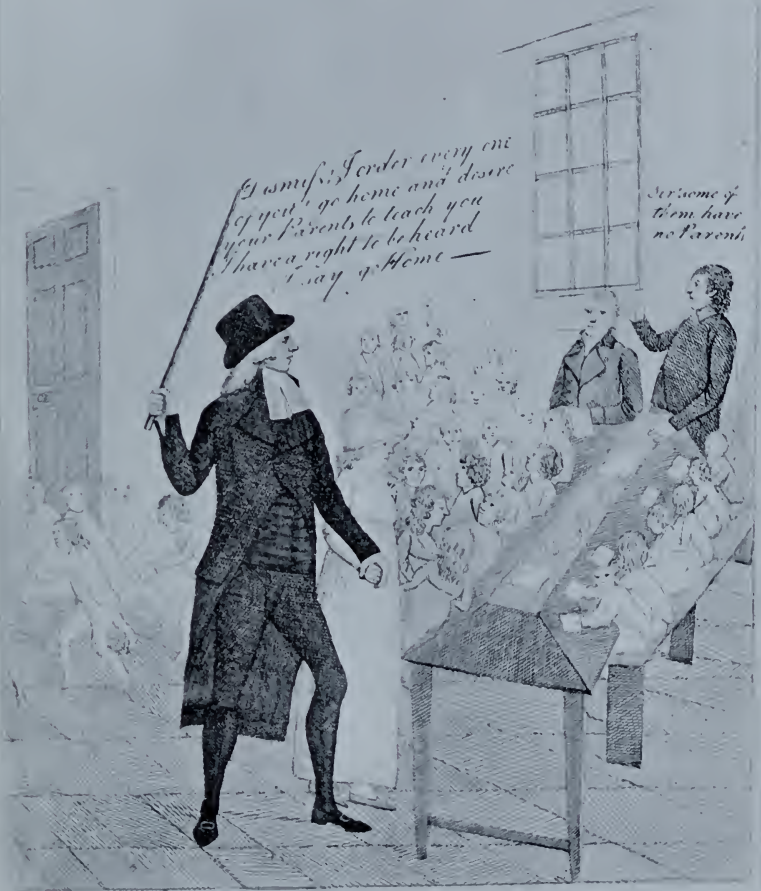 Dismiss! I order every one
of you, go home and desire
your Parents to teach you
I have a right to be heard
I say, go Home —
Sir some of
them have
no Parents